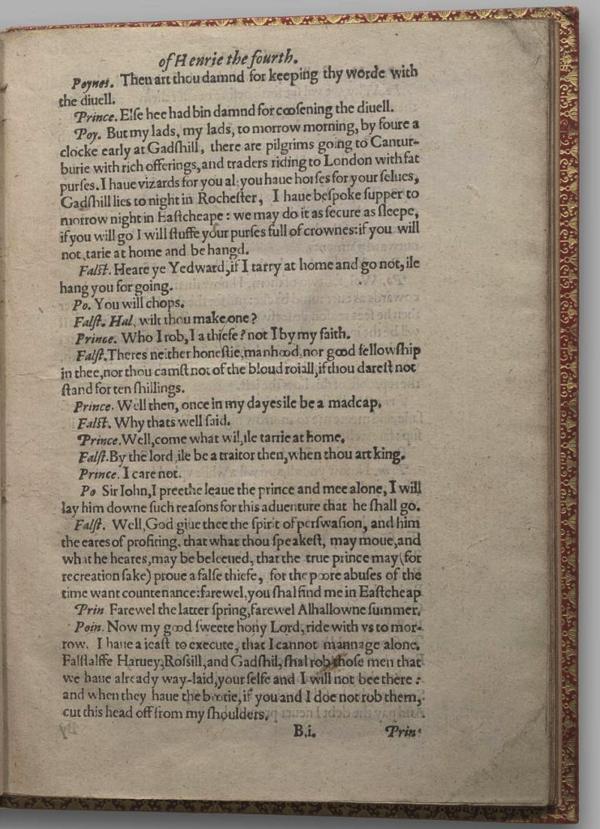 of Henrie the fourth.
Poynes. Then art thou damnd for keeping thy worde with
the diuell.
Prince. Else hee had bin damnd for coosening the diuell.
Poy. But my lads, my lads, to morrow morning, by foure a
clocke early at Gadshill, there are pilgrims going to Cantur-
burie with rich offerings, and traders riding to London with fat
purses. I haue vizards for you al: you haue horses for your selues,
Gadshill lies to night in Rochester, I haue bespoke supper to
morrow night in Eastcheape: we may do it as secure as sleepe,
if you will go I will stuffe your purses full of crownes: if you will
not, tarie at home and be hangd.
Falst. Heare ye Yedward, if I tarry at home and go not, ile
hang you for going.
Po. You will chops.
Falst. Hal, wilt thou make one?
Prince. Who I rob, I a thiefe? not I by my faith.
Falst. Theres neither honestie, manhood, nor good fellowship
in thee, nor thou camst not of the bloud roiall, if thou darest not
stand for ten shillings.
Prince. Well then, once in my dayes ile be a madcap.
Falst. Why thats well said.
Prince. Well, come what wil, ile tarrie at home.
Falst. By the lord ile be a traitor then, when thou art king.
Prince. I care not.
Po Sir Iohn, I preethe leaue the prince and mee alone, I will
lay him downe such reasons for this aduenture that he shall go.
Falst. Well, God giue thee the spirit of perswasion, and him
the eares of profiting, that what thou speakest, may moue, and
what he heares, may be beleeued, that the true prince may (for
recreation sake) proue a false thiefe, for the poore abuses of the
time want countenance: farewel, you shal find me in Eastcheap
Prin. Farewel the latter spring, farewel Alhallowne summer.
Poin. Now my good sweete hony Lord, ride with vs to mor-
row. I haue a ieast to execute, that I cannot mannage alone.
Falstalffe Haruey, Rossill, and Gadshil, shal rob those men that
we haue already way-laid, your selfe and I will not bee there:
and when they haue the bootie, if you and I doe not rob them,
cut this head off from my shoulders.
B.i. Prin